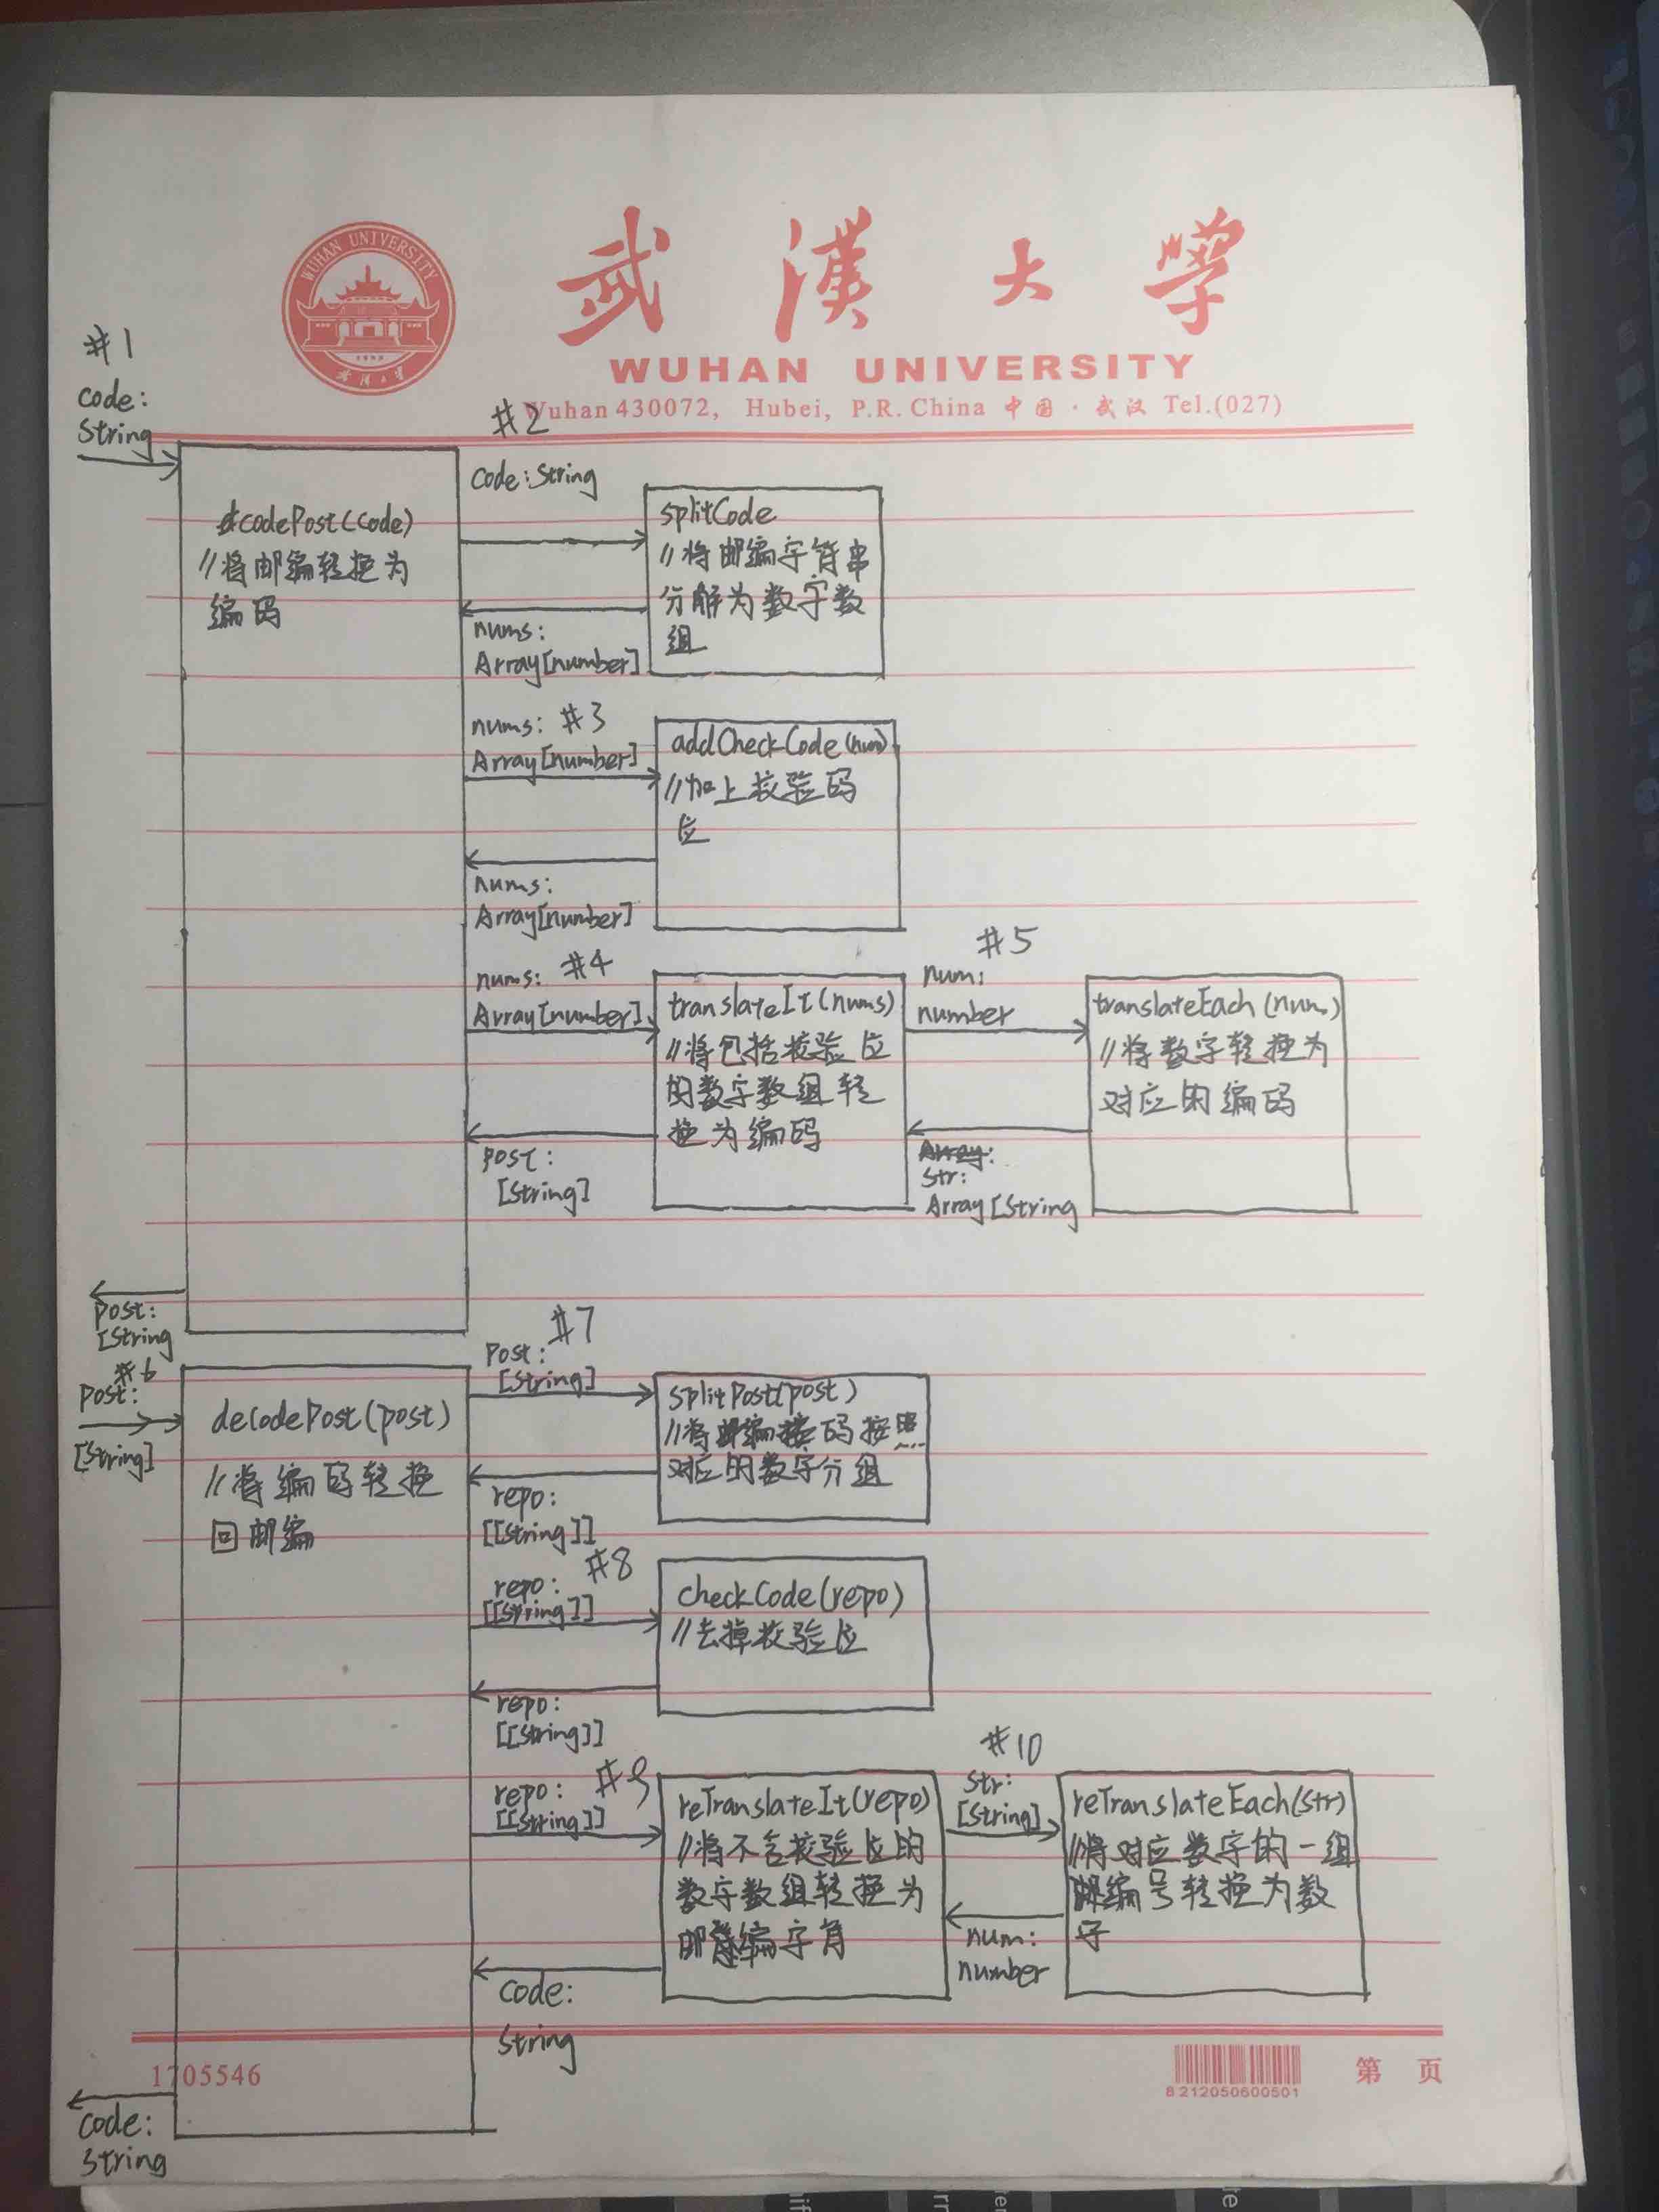 WUHAN UNIVERSITY
武漢大學
武漢大学
WUHAN UNIVERSITY
Wuhan 430072, Hubei, P.R. China 中国·武汉 Tel.(027)
#1
code:
String
codePost(code)
//将邮编转换为
编码
#2
code:String
splitCode
//将邮编字符串
分解为数字数
组
nums:
Array[number]
nums: #3
Array[number]
addCheckCode(num)
//加上校验码
位
nums:
Array[number]
nums: #4
Array[number]
translateIt(nums)
//将包括校验位
的数字数组转
换为编码
#5
num:
number
translateEach(num)
//将数字转换为
对应的编码
post:
[String]
Array:
str:
Array[String
post:
[String
#6
post:
[String]
decodePost(post)
//将编码转换
回邮编
#7
post:
[String]
splitPost(post)
//将编码按照
对应的数字分组
repo:
[[String]]
repo: #8
[[String]]
checkCode(repo)
//去掉校验位
repo:
[[String]]
repo: #9
[[String]]
reTranslateIt(repo)
//将不含校验位的
数字数组转换为
邮编字符
#10
str:
[String]
reTranslateEach(str)
//将对应数字的一组
编号转换为数
字
num:
number
code:
String
code:
String
1705546
8212050600501
第 页